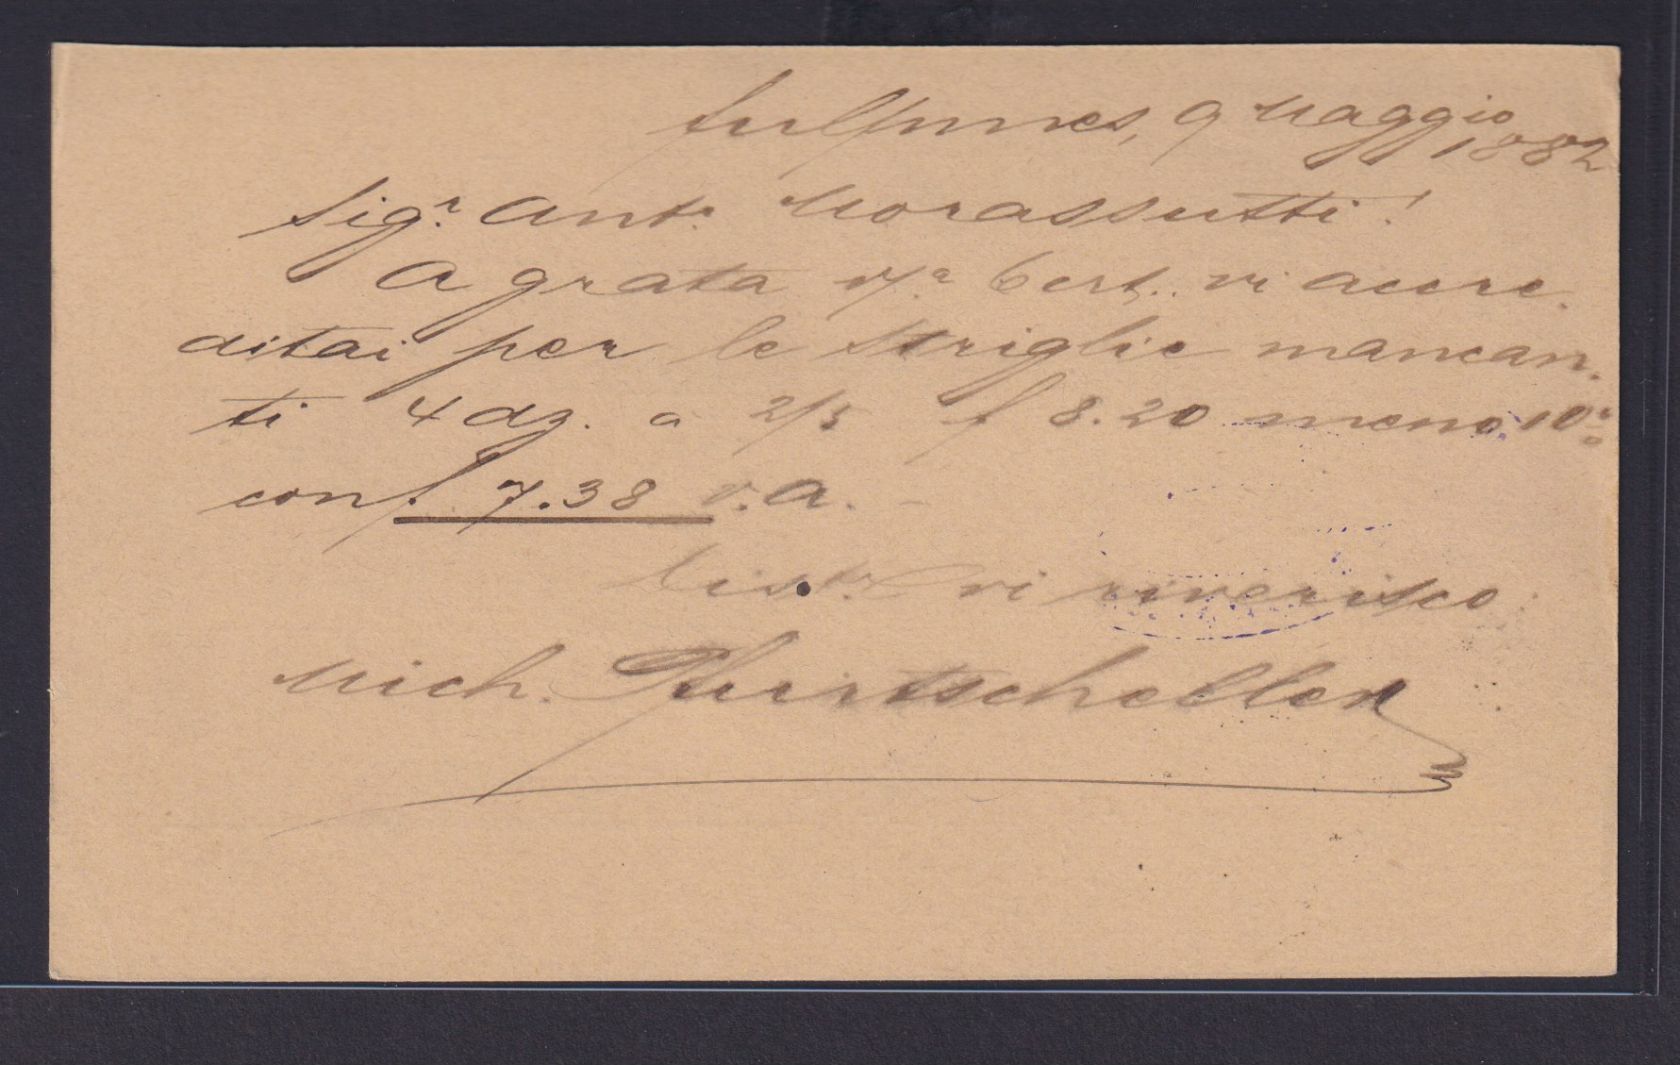 Fulpmes, 9 Maggio
1882
Sigr. Ant. Morassutti!
A grata va. Cert. vi accre-
ditai per le Striglie mancan-
ti 4 dz. a 2/3 f 8.20 meno 10%
con f. 7.38 v.a. -
Dist. vi riverisco
Mich. Pfurtscheller